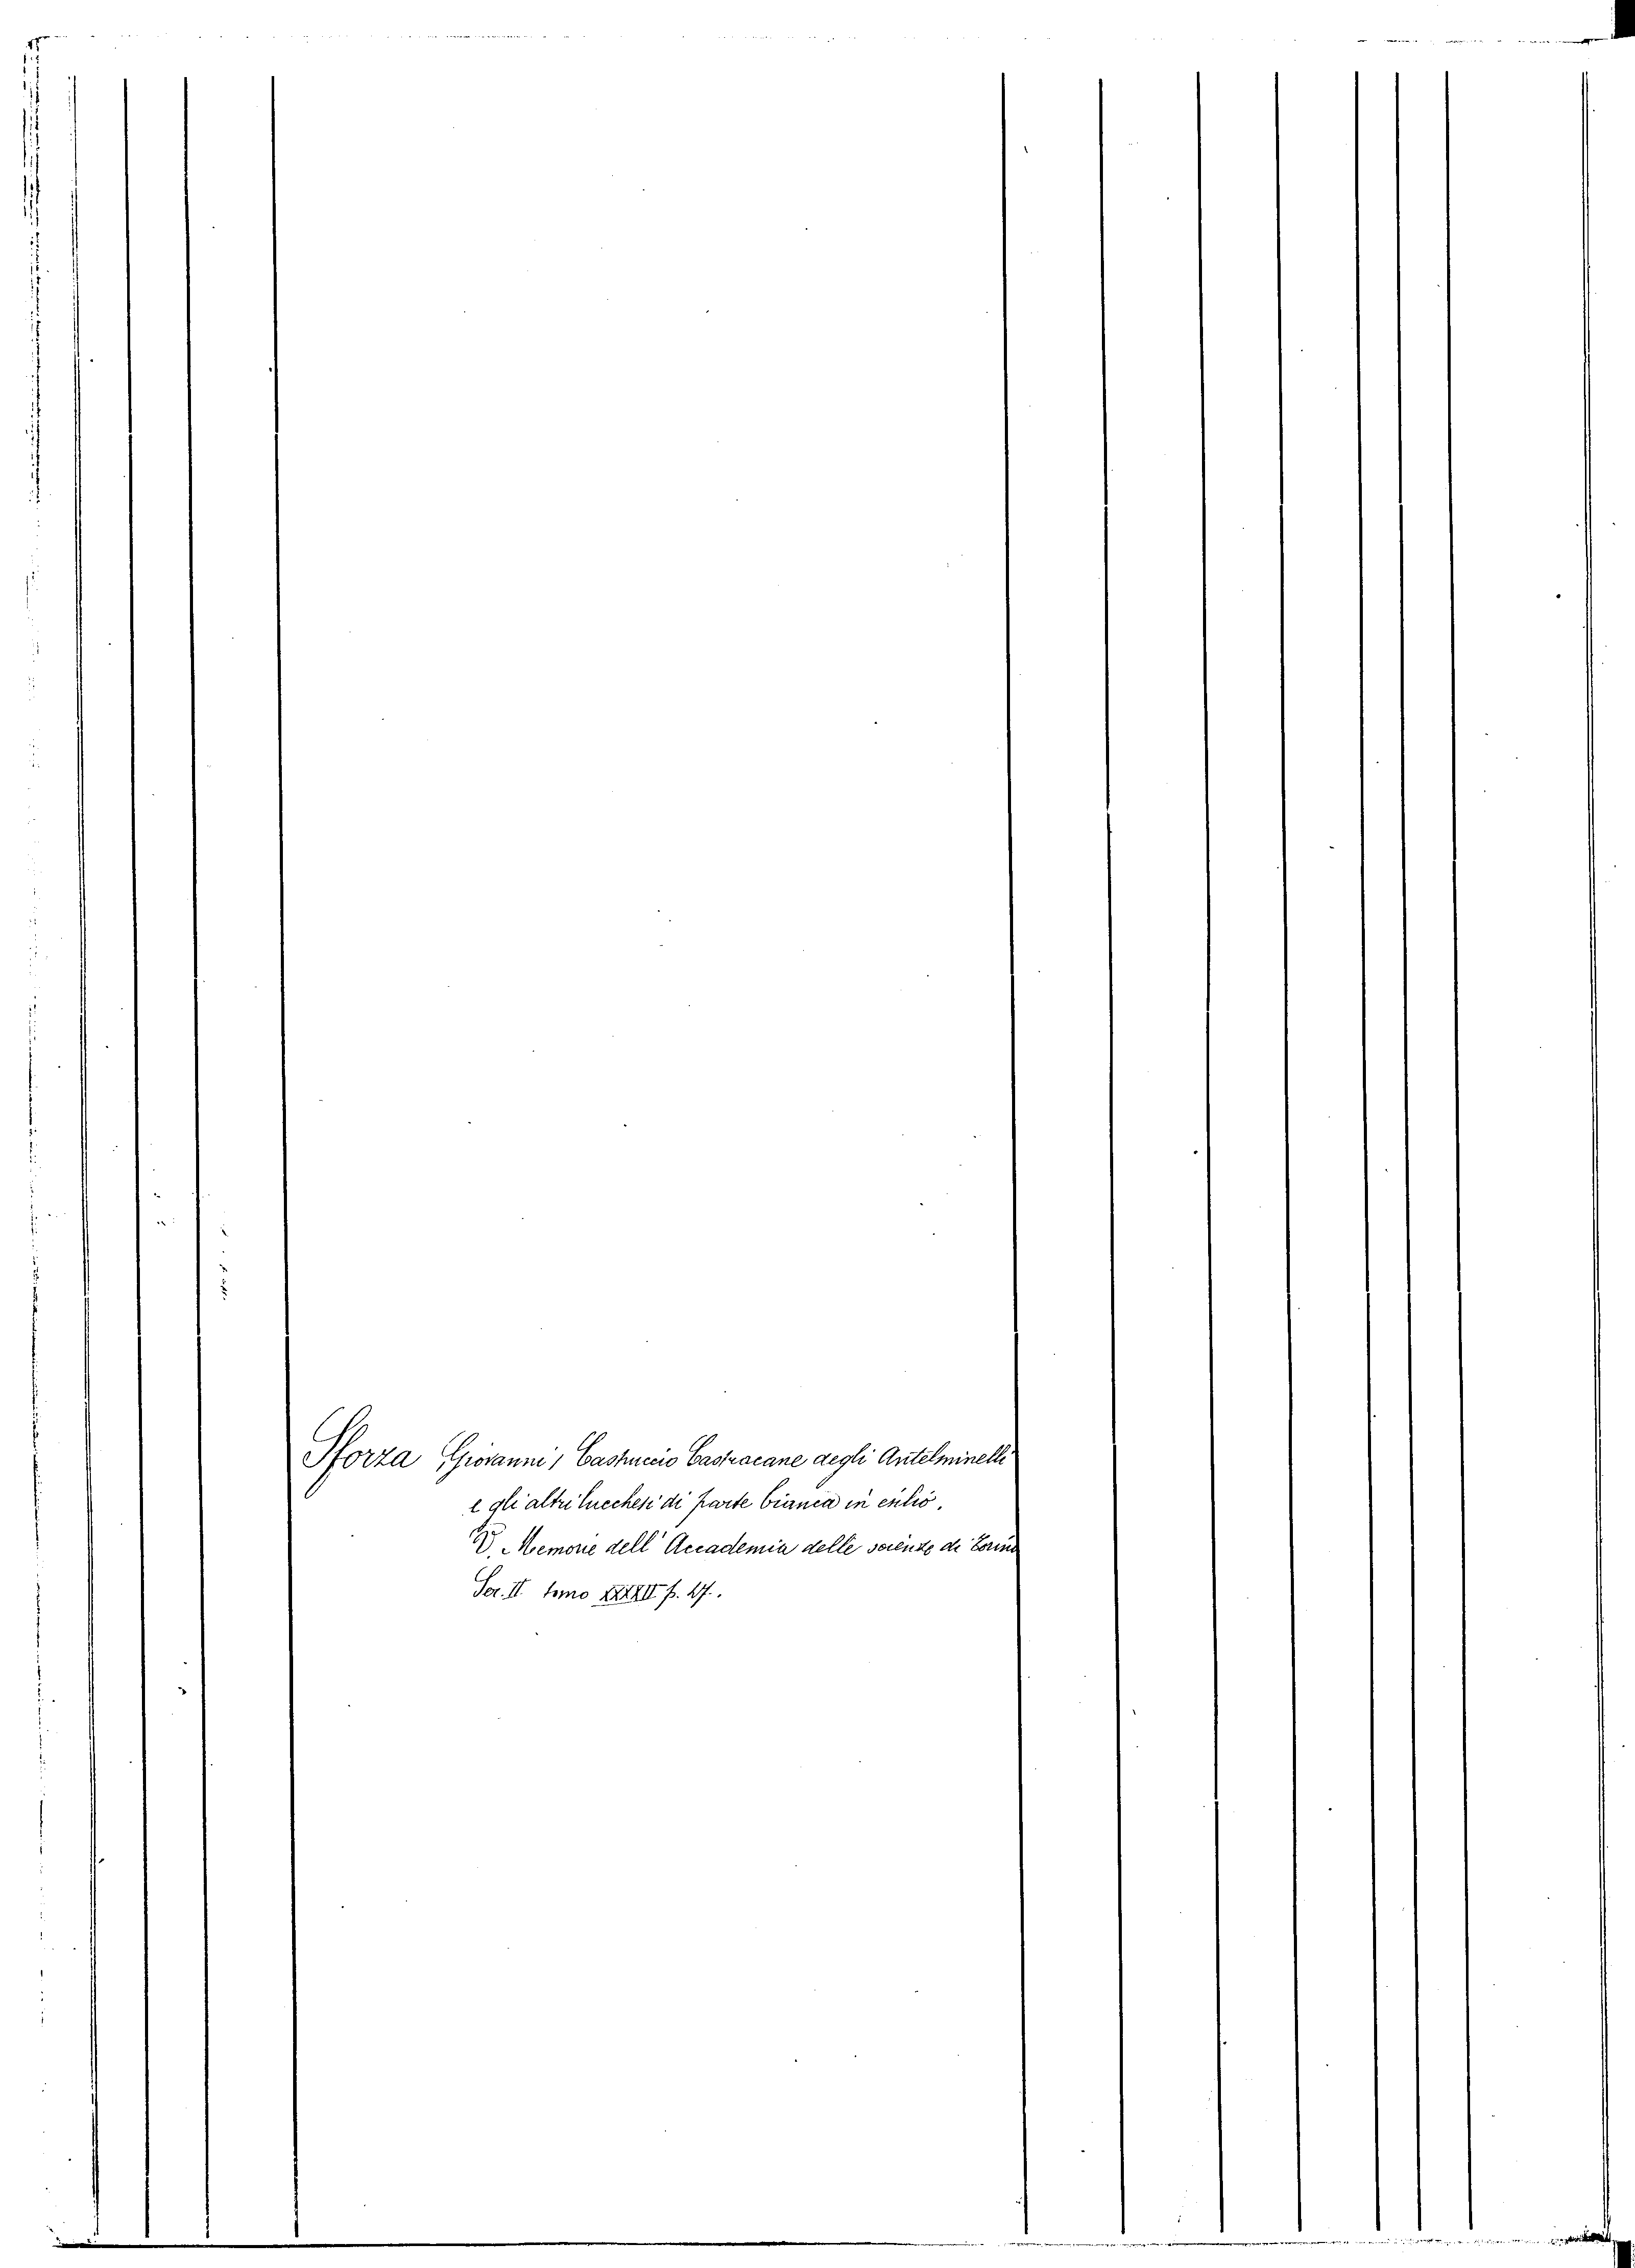 Sforza Giovanni, Castruccio Castracane degli Antelminelli
e gli altri lucchesi di parte bianca in esilio.
V. Memorie dell' Accademia delle scienze di Torino
Ser. II tomo XXXXII p. 47.